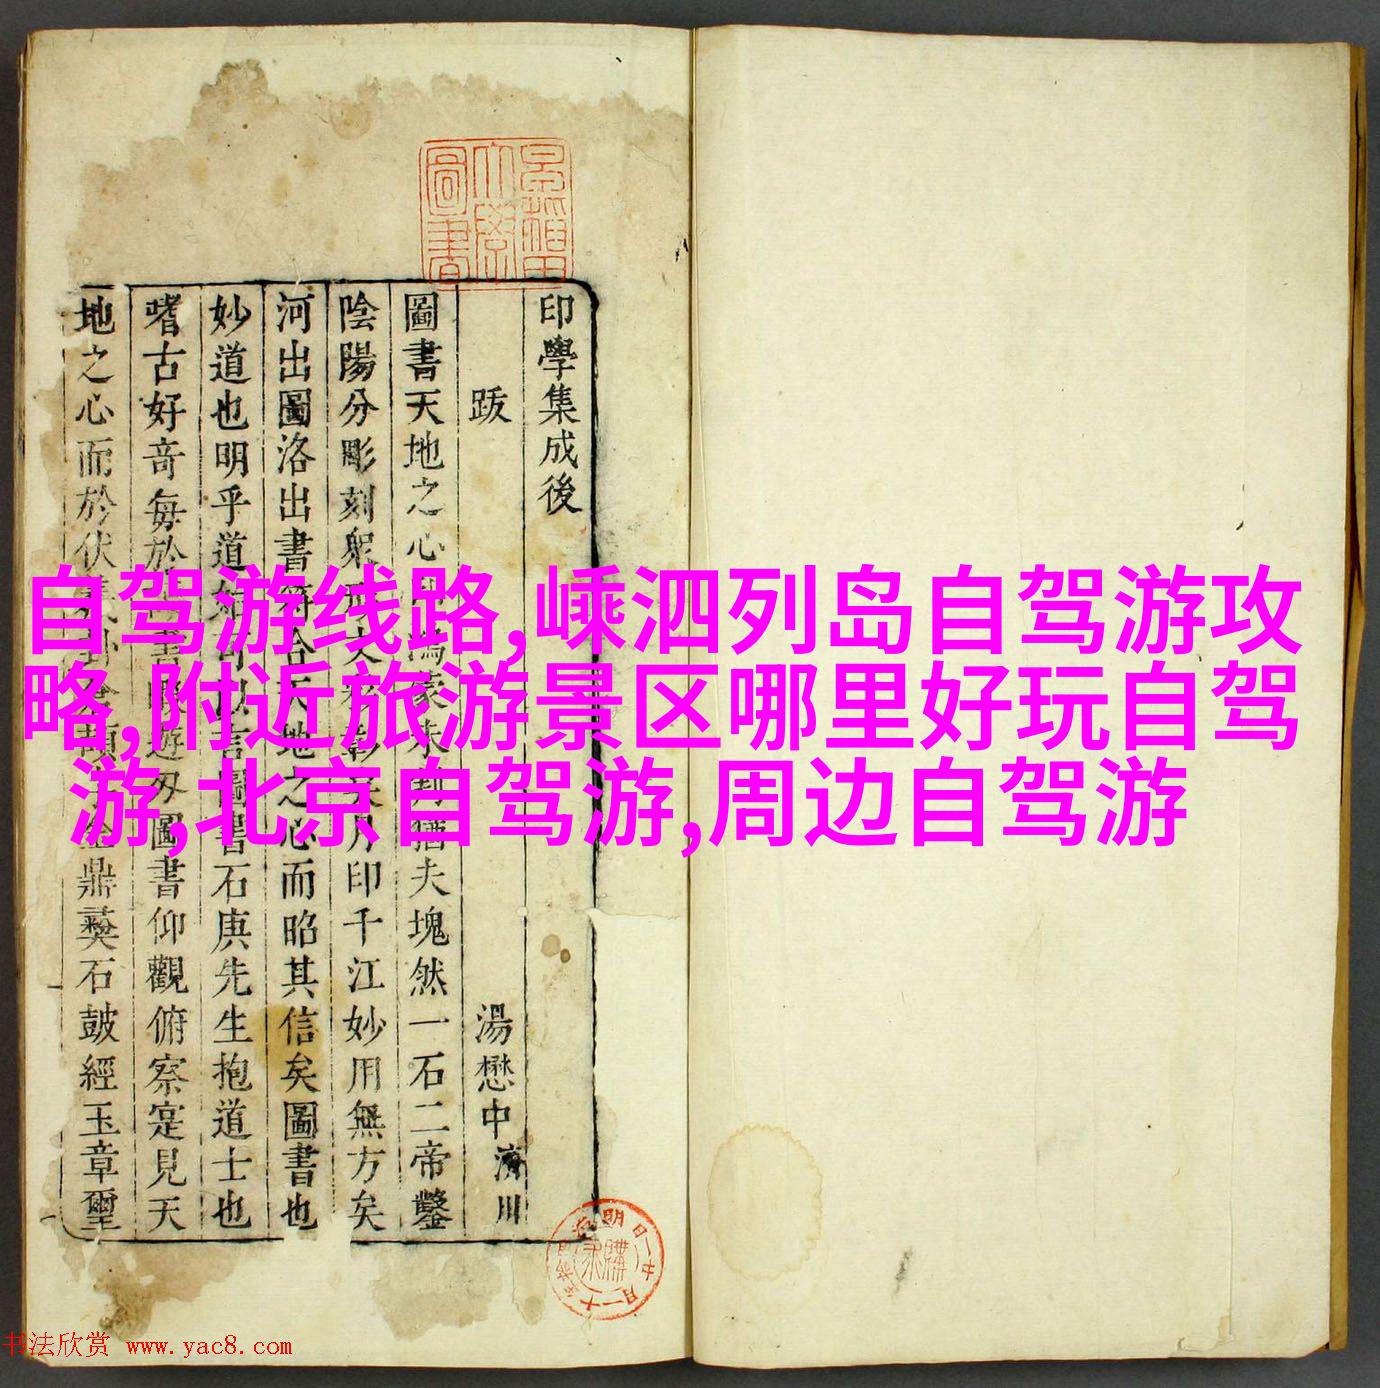 早稻田大學圖書
印學集成後
跋 湯懋中濟川
圖書天地之心 蒙未判猶夫塊然一石二帝鑿
陰陽分彫刻 印千江妙用無方矣
河出圖洛出書符合天地之心而昭其信矣圖書也
妙道也明乎道始可以言圖書石庚先生抱道士也
嗜古好竒每於 書 遊刃圖書仰觀俯察寔見天
地之心而於伏 鼎彝石鼓經玉章璽
自驾游线路,嵊泗列岛自驾游攻
略,附近旅游景区哪里好玩自驾
游,北京自驾游,周边自驾游
书法欣赏 www.yac8.com